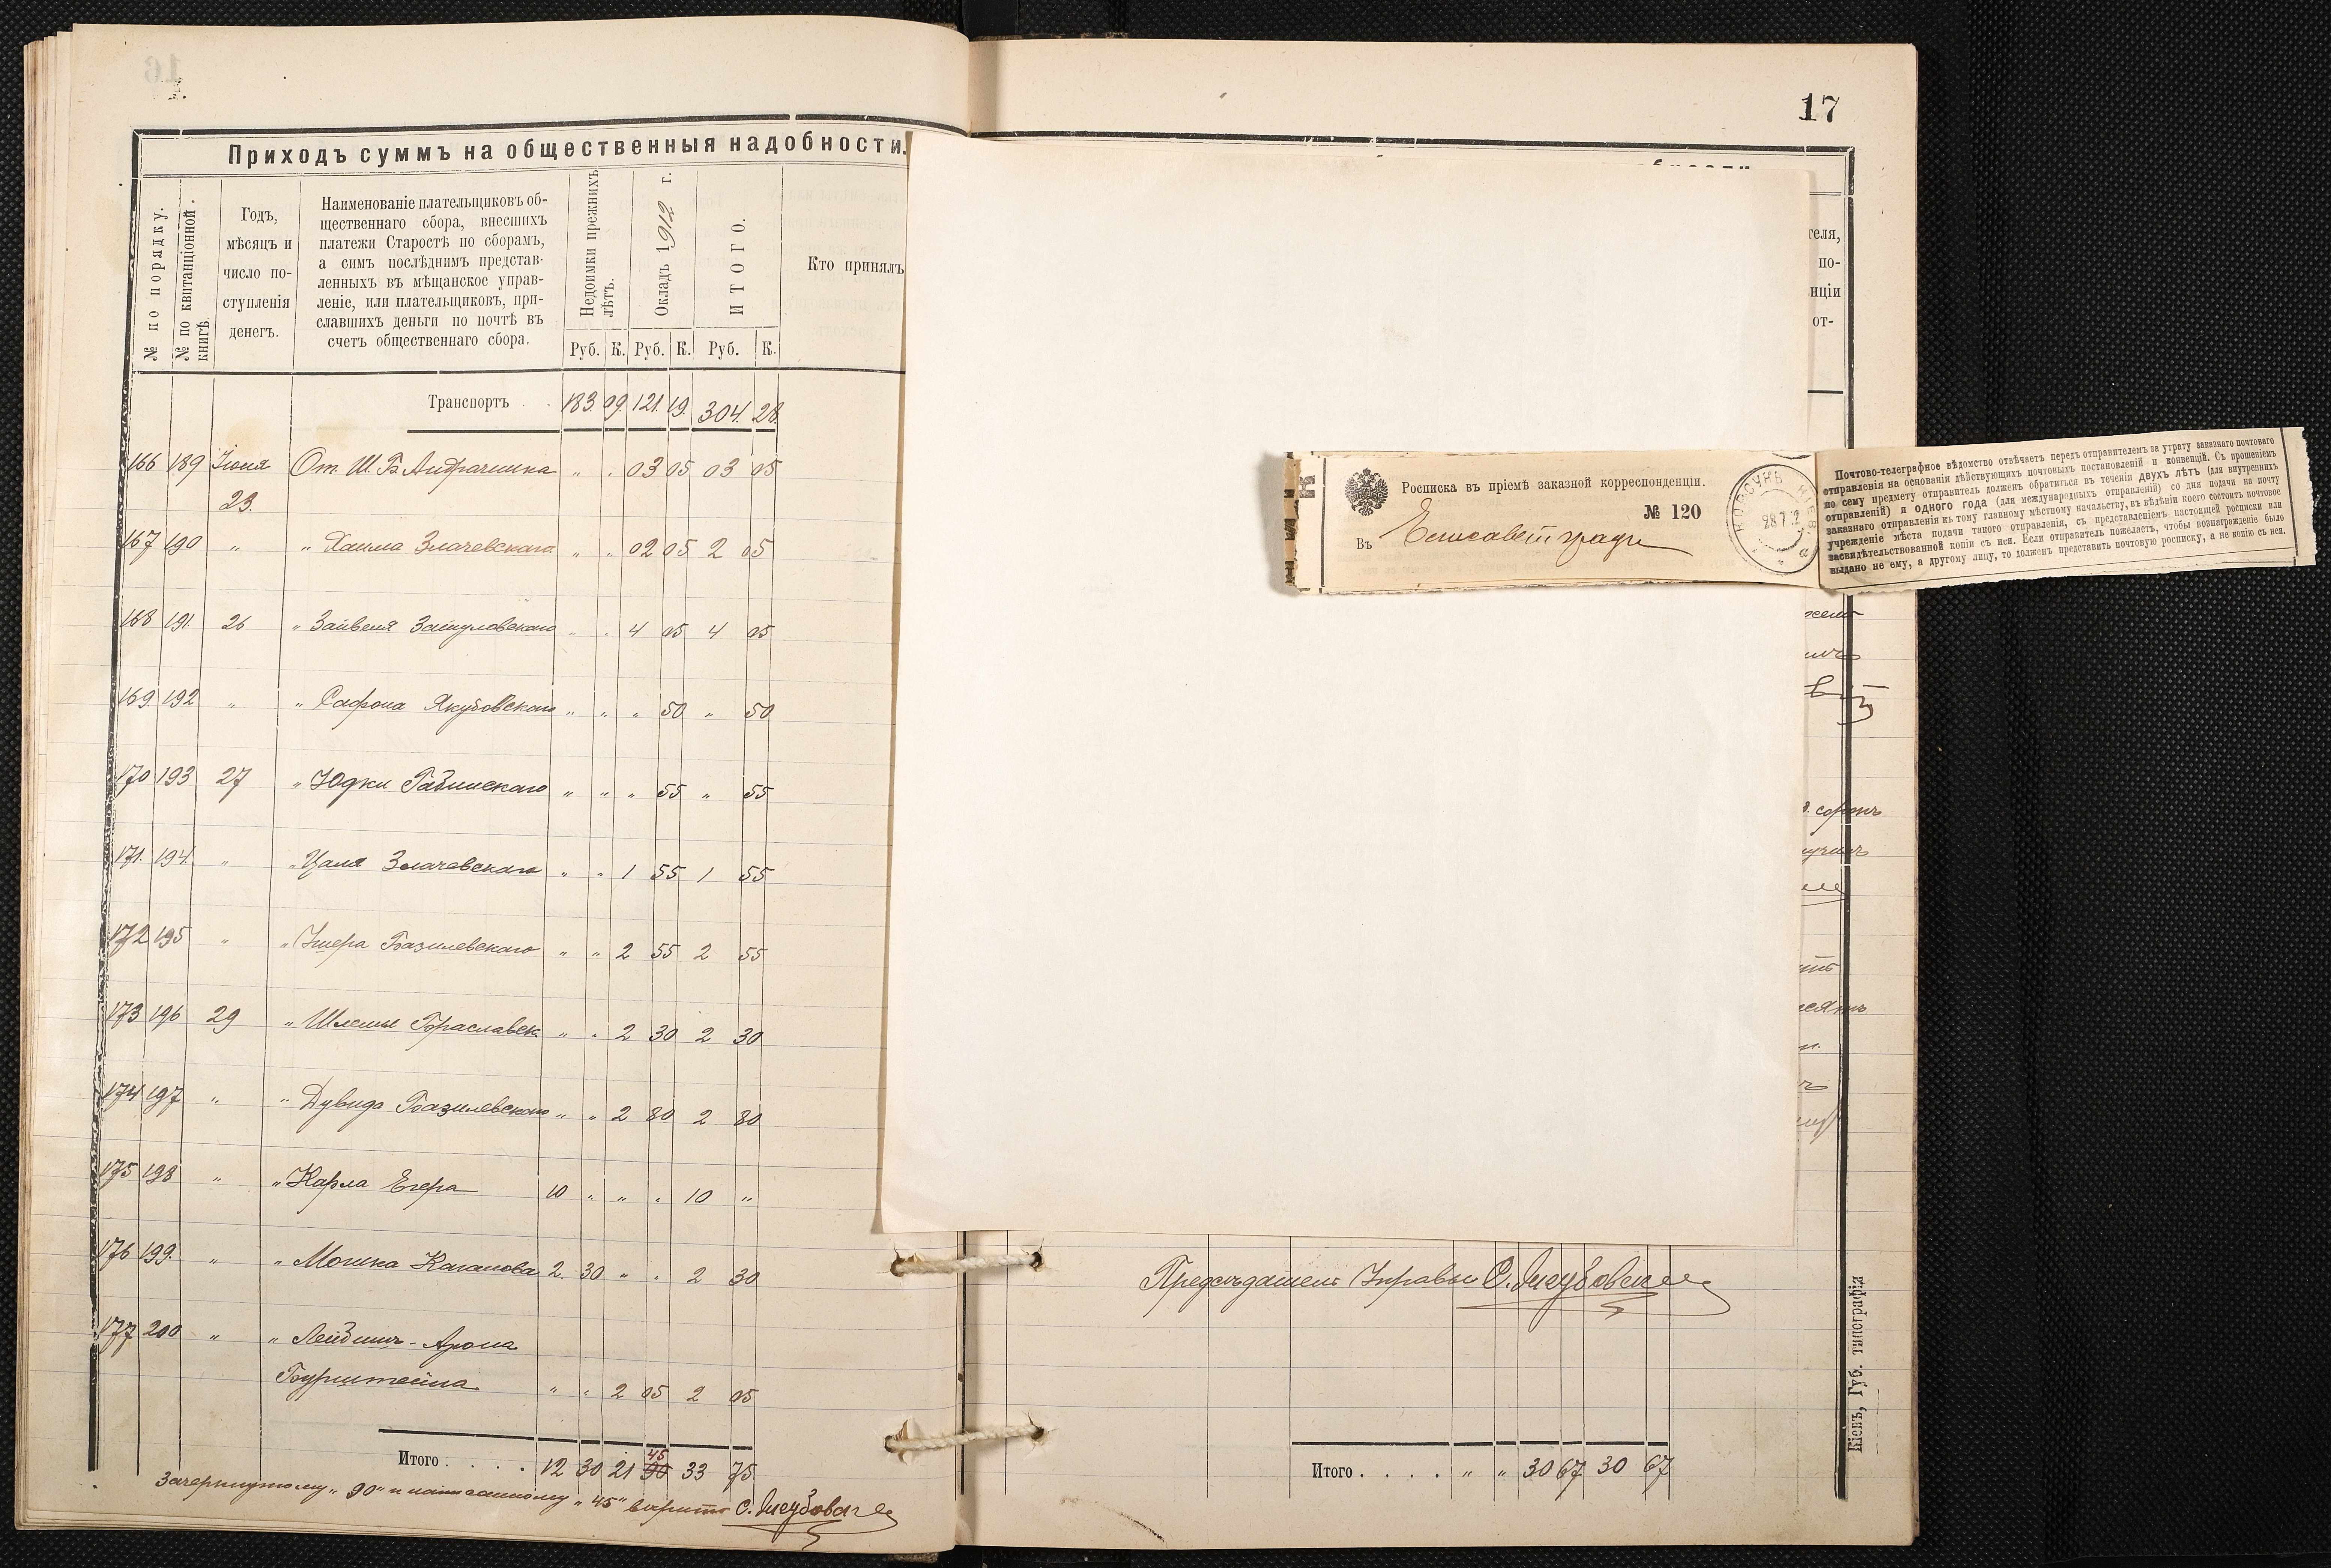 17
Приходъ суммъ на общественныя надобности.
№ по порядку.
№ по квитанціонной книгѣ.
Годъ, мѣсяцъ и число поступленія денегъ.
Наименованіе плательщиковъ об-
щественнаго сбора, внесшихъ
платежи Старостѣ по сборамъ,
а симъ послѣднимъ представ-
ленныхъ въ мѣщанское управ-
леніе, или плательщиковъ, при-
славшихъ деньги по почтѣ въ
счетъ общественнаго сбора.
Недоимки прежнихъ лѣтъ.
Окладъ 1912 г.
ИТОГО.
Кто принялъ
Руб. К. Руб. К. Руб. К.
Транспортъ . . 183. 09. 121. 19. 304. 28.
166 189 Іюня 23. От Ш. Б. " . 03 05 03 05
167 190 " " Хаима Злачевскаго " " 02 05 2 05
168 191 26 " Зайвеля " . 4 05 4 05
169. 192 " " Сафона Якубовскаго " " " 50 " 50
170 193 27 " Юдки " " " 55 " 55
171. 194. " " Цаля Злачевскаго " " 1 55 1 55
172 195 " " Ушера Базилевскаго " " 2 55 2 55
173 196 29 " Шлемы Бораславск. " " 2 30 2 30
174 197 " " Дувида Базилевскаго " " 2 80 2 80
175 198 " " Карла Егера 10 " " " 10 "
176 199. " " Мошка Каганова 2. 30 " " 2 30
177 200 " " Арона
Бурштейна " " 2 05 2 05
45
Итого . . . . 12 30 21 90 33 75
Зачеркнутому „90" и написанному „45" верить С. Якубовскій
теля,
по-
нціи
от-
Росписка въ пріемѣ заказной корреспонденціи.
№ 120
Въ Елисаветградъ
КОРСУНЬ КІЕВ.
28 7 12
а
Почтово-телеграфное вѣдомство отвѣчаетъ передъ отправителемъ за утрату заказнаго почтоваго
отправленія на основаніи дѣйствующихъ почтовыхъ постановленій и конвенцій. Съ прошеніемъ
по сему предмету отправитель долженъ обратиться въ теченіи двухъ лѣтъ (для внутреннихъ
отправленій) и одного года (для международныхъ отправленій) со дня подачи на почту
заказнаго отправленія къ тому главному мѣстному начальству, въ вѣдѣніи коего состоитъ почтовое
учрежденіе мѣста подачи такого отправленія, съ представленіемъ настоящей росписки или
засвидѣтельствованной копіи съ нея. Если отправитель пожелаетъ, чтобы вознагражденіе было
выдано не ему, а другому лицу, то долженъ представить почтовую росписку, а не копію съ нея.
Предсѣдатель Управы С. Якубовскій
Итого . . . . " " 30 67 30 67
Кіевъ, Губ. типографія